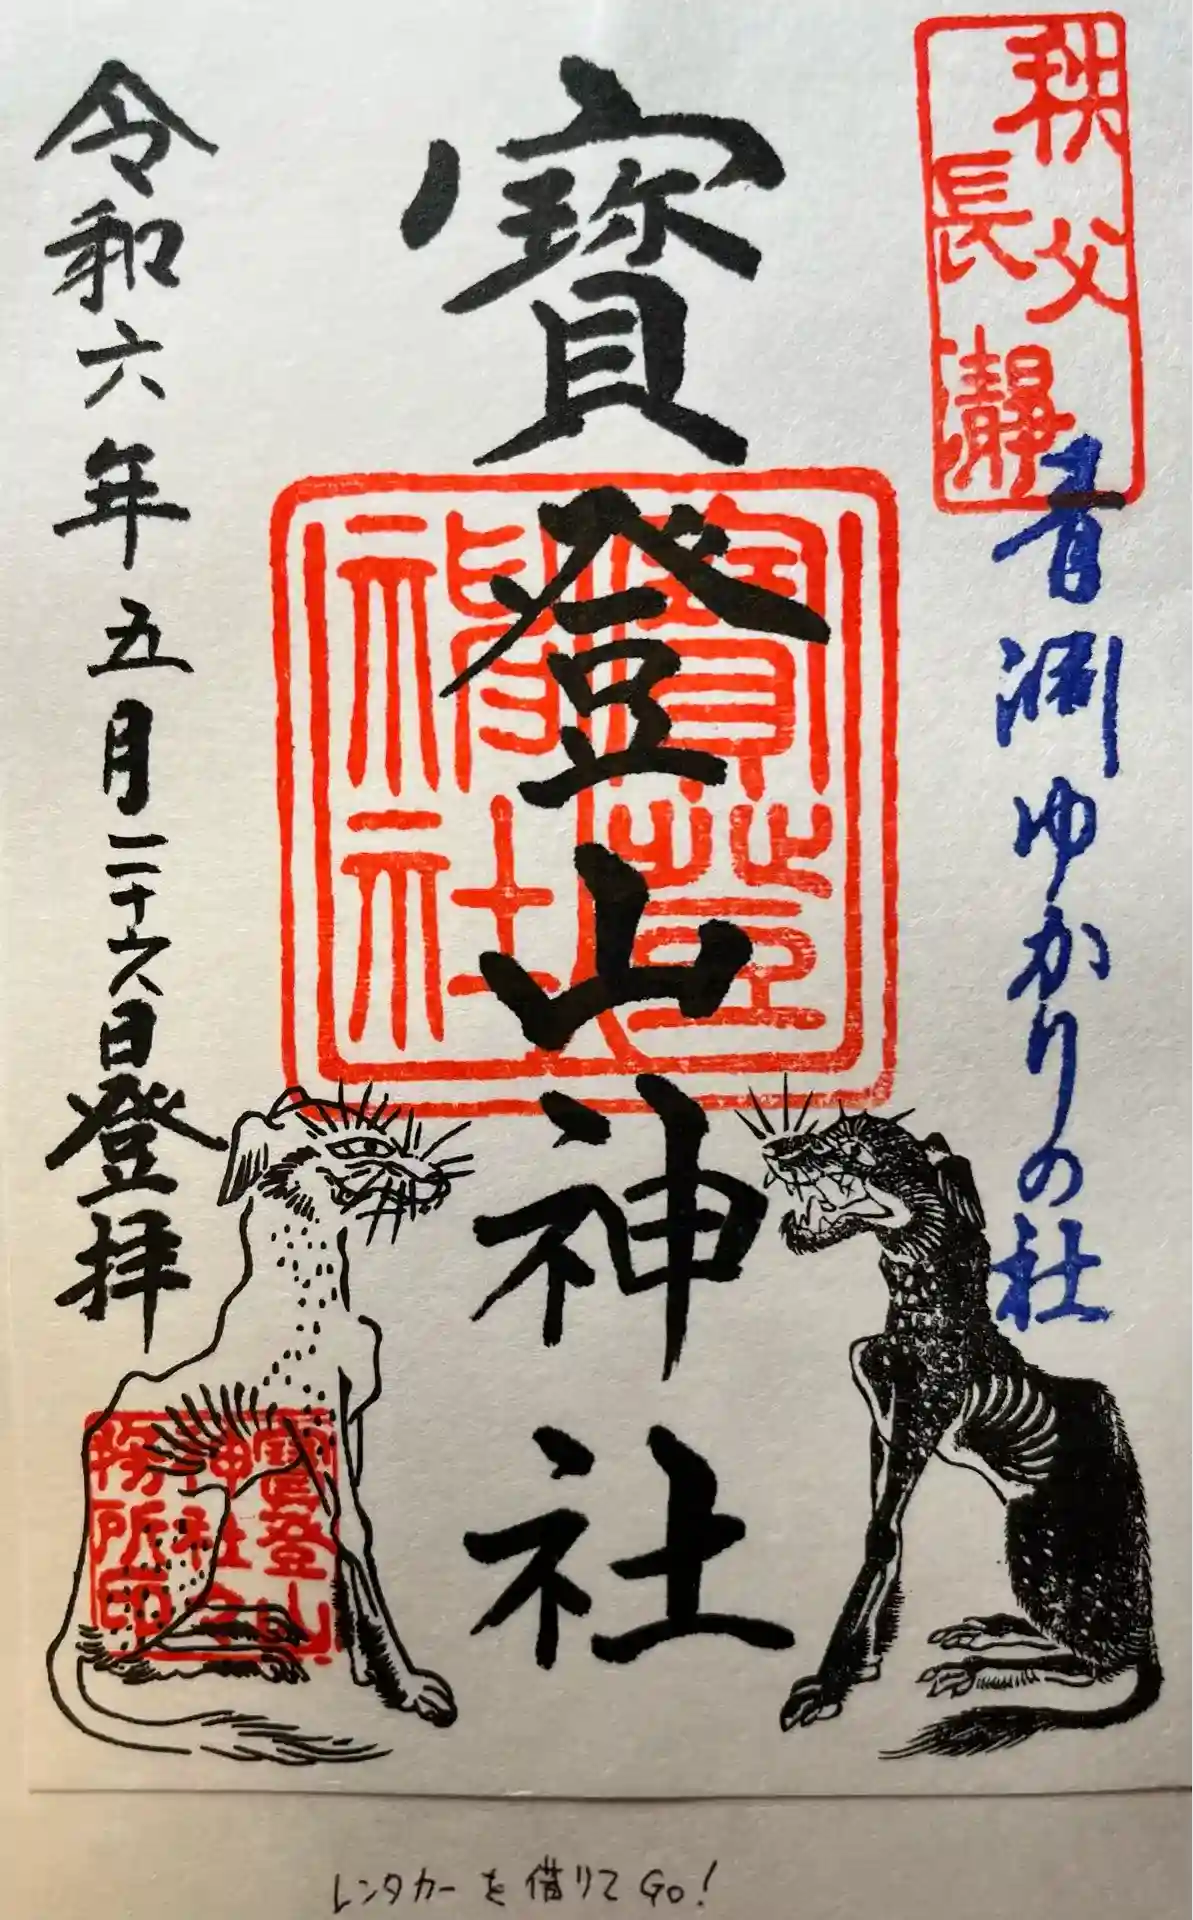 秩父
長瀞
青淵ゆかりの社
寶登山神社
寶登
神社
令和六年五月二十六日登拝
寶登山
神社社
務所印
レンタカーを借りてGo!